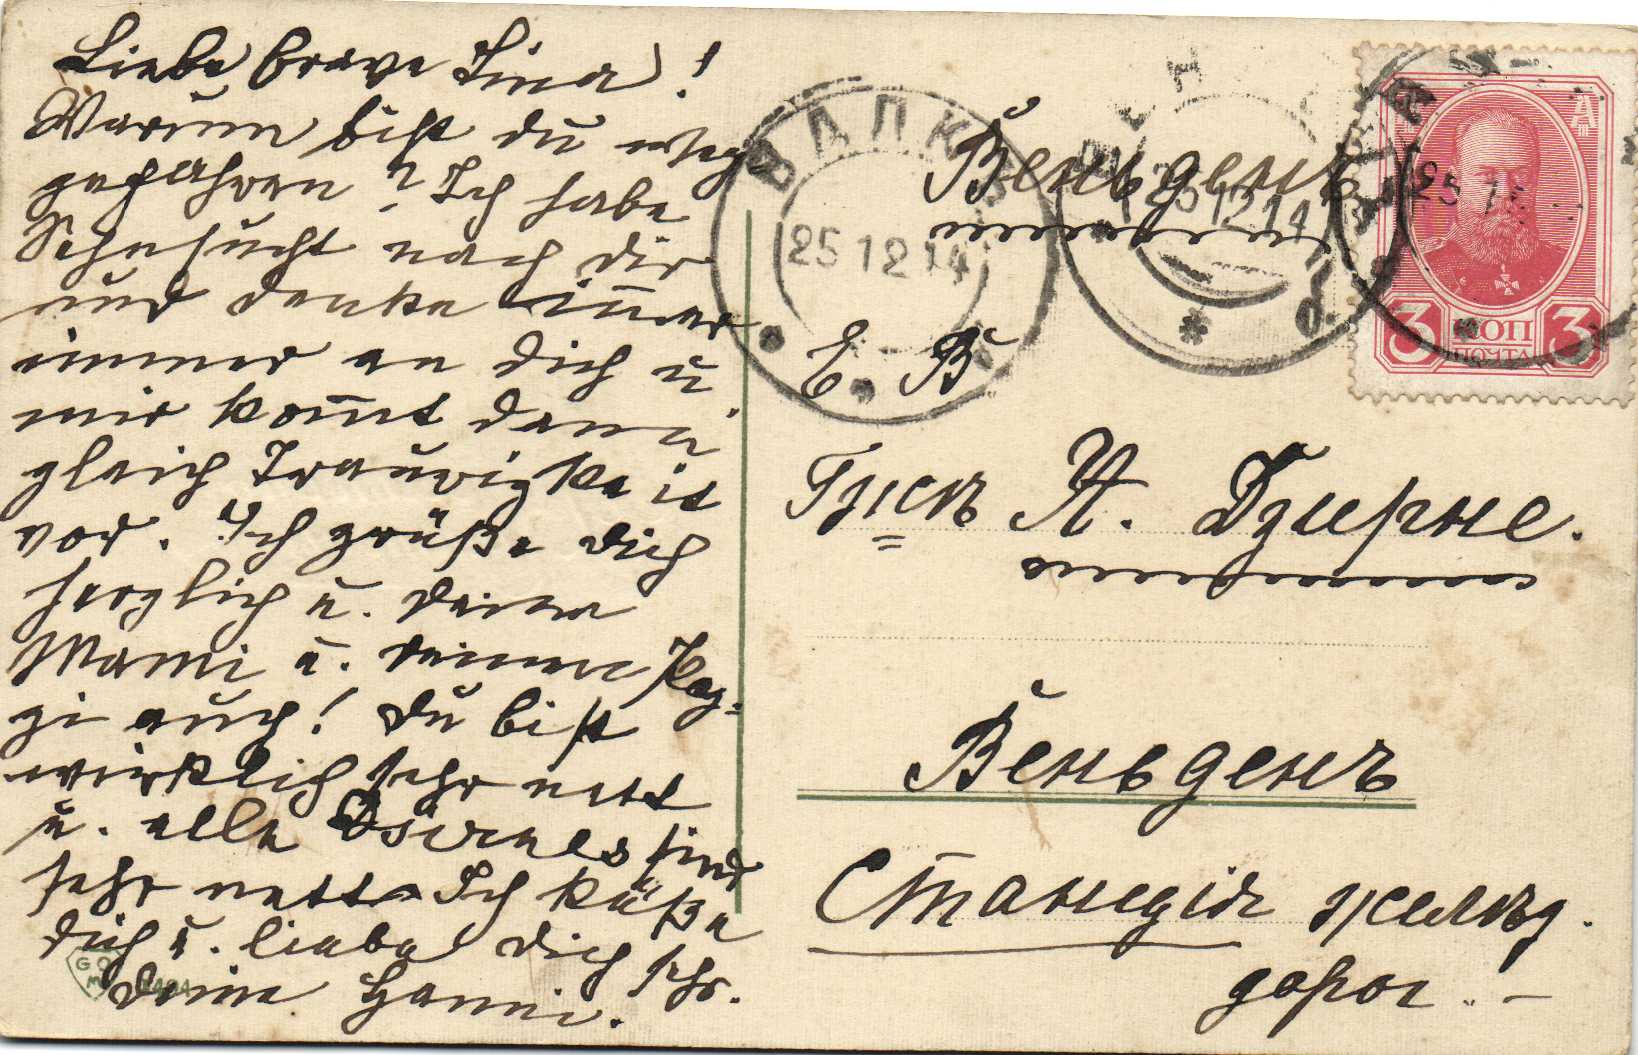 Liebe brave Lina!
Warum bist du weg
gefahren? Ich habe
Sehnsucht nach dir
und denke im̄er
immer an dich u.
mir kom̄t dann
gleich Traurigkeit
vor. Ich grüße dich
herzlich u. deine
Mami u. deinen Pa-
gi auch! Du bist
wirklich sehr nett
u. alle sind
sehr nett. Ich küße
dich u. liebe dich sehr.
Deine Hanni.
ВАЛКЪ
25 12 14
25 12 14
25 12
3 КОП 3
ПОЧТА
Веньденъ
Е. В
Г. Дзирне.
Веньденъ
Станція желѣзд.
дорог.